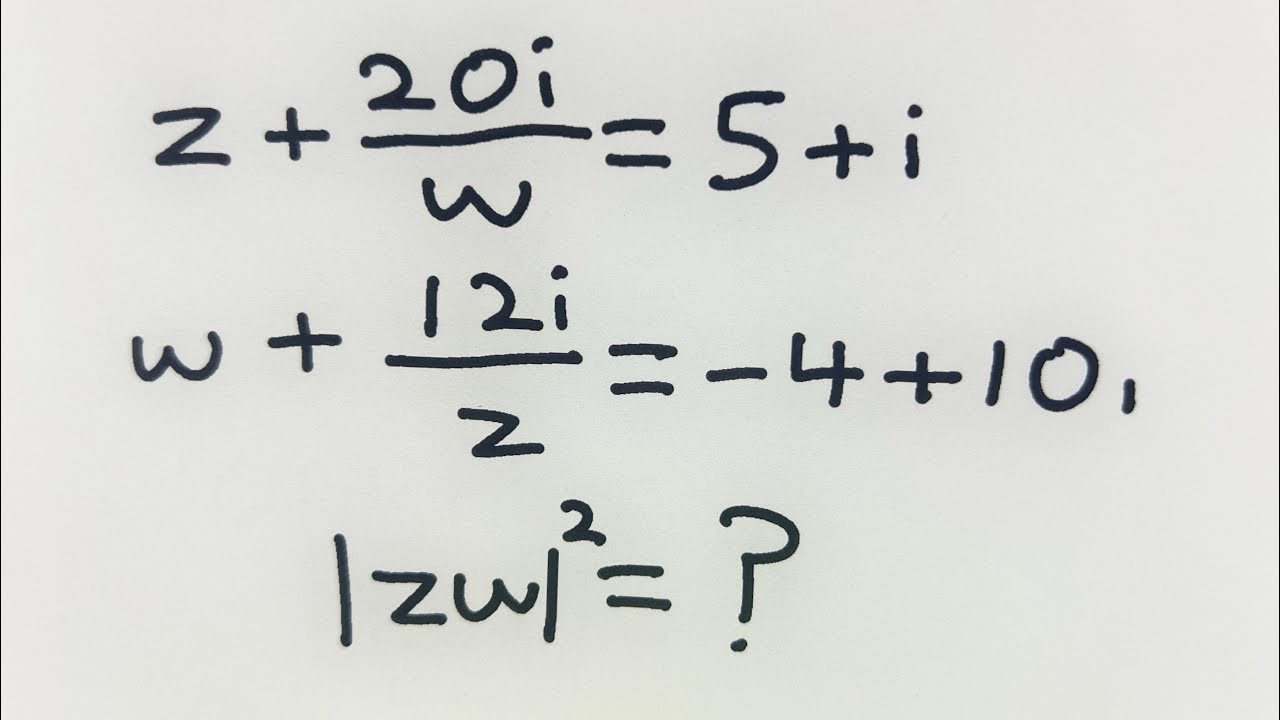 z + 20i/w = 5 + i
w + 12i/z = -4 + 10i
|zw|² = ?